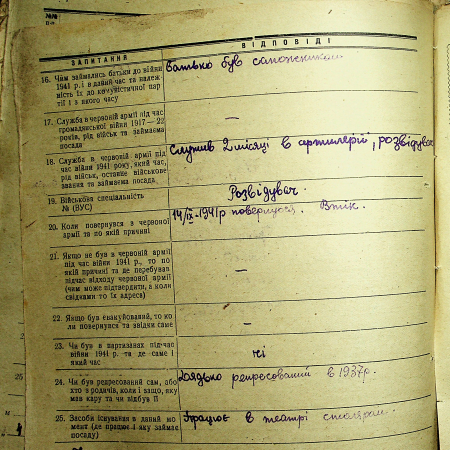 №№
п-п
ЗАПИТАННЯ
ВІДПОВІДІ
16. Чим займались батьки до війни
1941 р. і в даний час та належ-
ність їх до комуністичної пар-
тії і з якого часу
батько був сапожником.
17. Служба в червоній армії під час
громадянської війни 1917—22
років, рід військ та займаєма
посада
—
18. Служба в червоній армії під
час війни 1941 року, який час,
рід військ, останнє військове
звання та займаєма посада
Служив 2 місяці в артилерії, розвідувач
19. Військова спеціальність
№ (ВУС)
Розвідувач.
20. Коли повернувся з червоної
армії та по якій причині
14/IX-1941р повернувся. Втік.
21. Якщо не був в червоній армії
під час війни 1941 р., то по
якій причині та де перебував
підчас відходу червоної армії
(чим може підтвердити, а коли
свідками то їх адреса)
—
22. Якщо був евакуйований, то ко-
ли повернувся та звідки саме
—
23. Чи був в партизанах під-час
війни 1941 р. та де саме і
який час
ні
24. Чи був репресований сам, або
хто з родичів, коли і защо, яку
мав кару та чи відбув її
Дядько репресований в 1937р.
25. Засоби існування в даний мо-
мент (де працює і яку займає
посаду)
Працює в театрі столяром.